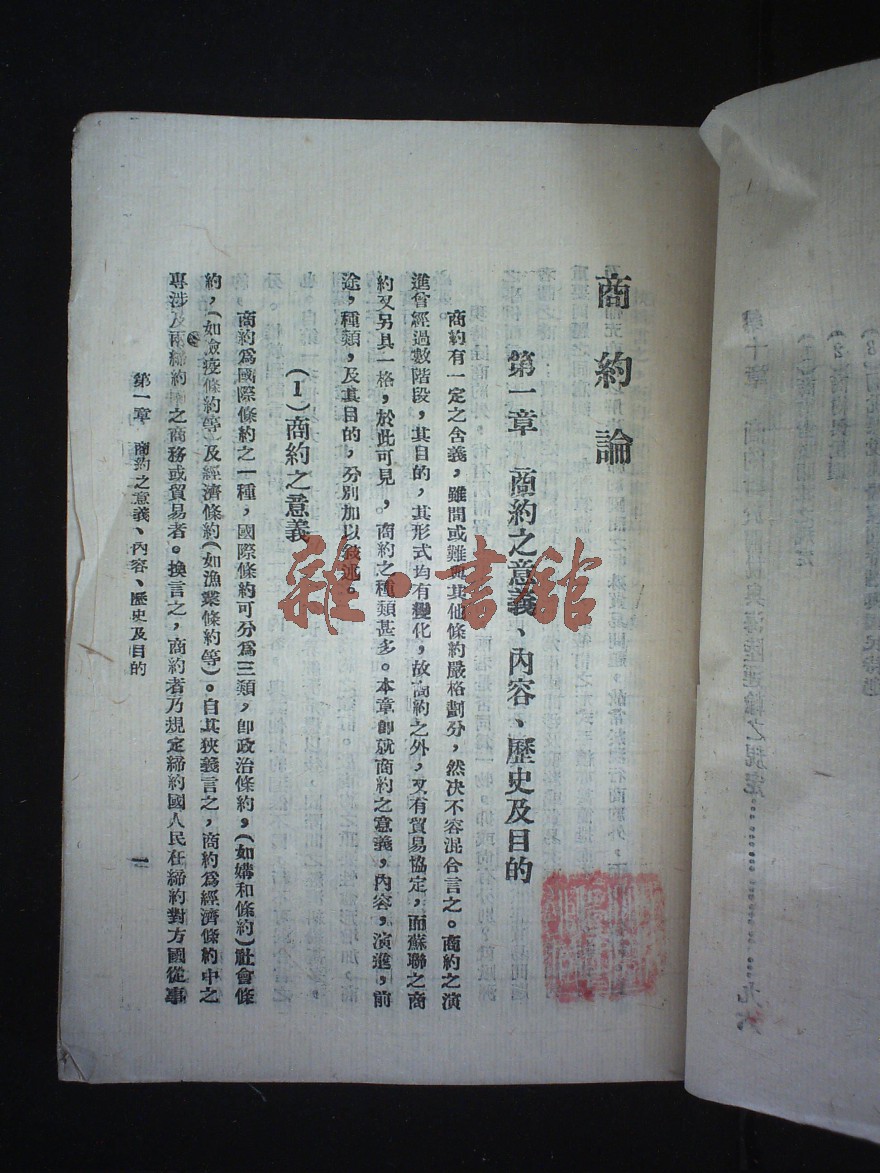 商約論
第一章　商約之意義、內容、歷史及目的
商約有一定之含義，雖間或難與其他條約嚴格劃分，然決不容混合言之。商約之演
進曾經過數階段，其目的，其形式均有變化，故商約之外，又有貿易協定，而蘇聯之商
約又另具一格，於此可見。商約之種類甚多。本章卽就商約之意義，內容，演進，前
途，種類，及其目的，分別加以敍述。
(1)商約之意義
商約爲國際條約之一種，國際條約可分爲三類，卽政治條約，（如媾和條約）社會條
約，（如檢疫條約等）及經濟條約（如漁業條約等）。自其狹義言之，商約爲經濟條約中之
專涉及兩締約國之商務或貿易者。換言之，商約者乃規定締約國人民在締約對方國從事
第一章　商約之意義、內容、歷史及目的
一
雜·書館